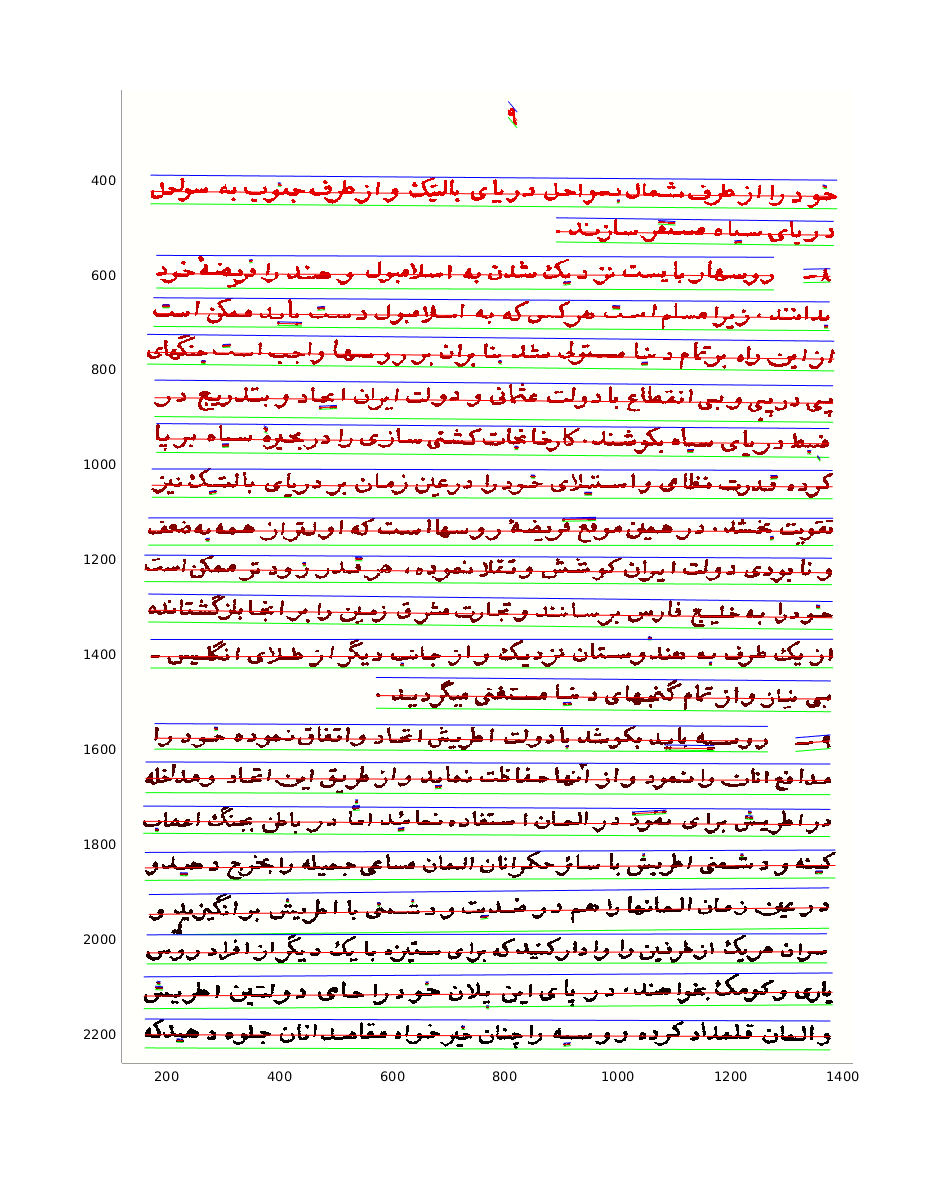 ۹
خود را از طرف شمال بسواحل دریای بالتیک و از طرف جنوب به سواحل
دریای سیاه مستقر سازند .
۸ـ روسها بایست نزدیک شدن به اسلامبول و هند را فریضهٔ خود
بدانند . زیرا مسلم است هرکس که به اسلامبول دست یابد ممکن است
از این راه بر تمام دنیا مستولی شد بنابران بر روسها واجب است جنگهای
پی در پی و بی انقطاع با دولت عثمانی و دولت ایران ایجاد و بتدریج در
ضبط دریای سیاه بکوشند . کارخانجات کشتی سازی را در بحیرهٔ سیاه برپا
کرده قدرت نظامی و استیلای خود را در عین زمان بر دریای بالتیک نیز
تقویت بخشد . در همین موقع فریضهٔ روسها است که اولتر از همه به ضعف
و نابودی دولت ایران کوشش و تقلا نموده ، هر قدر زود تر ممکن است
خود را به خلیج فارس برسانند و تجارت مشرق زمین را بر انجا بازگشتانده
از یک طرف به هندوستان نزدیک و از جانب دیگر از طلای انگلیس -
بی نیاز و از تمام گنجهای دنیا مستغنی میگردید .
۹ـ روسیه باید بکوشد با دولت اطریش اتحاد و اتفاق نموده خود را
مدافع انان وانمود و از آنها حفاظت نماید و از طریق این اتحاد و مداخله
در اطریش برای نفوذ در المان استفاده نمائید اما در باطن بجنگ اعقاب
کینه و دشمنی اطریش با سائر حکمرانان المان مساعی جمیله را بخرج دهید و
در عین زمان المانها را هم دو ضدیت و دشمنی با اطریش برانگیزید و
سران هریک از طرفین را وادار کنید که برای ستیزه با یک دیگر از افراد روس
یاری و کومک بخواهند . در پای این پلان خود را حامی دولتین اطریش
و المان قلمداد کرده و روسیه را چنان خیرخواه مقاصد انان جلوه دهید که